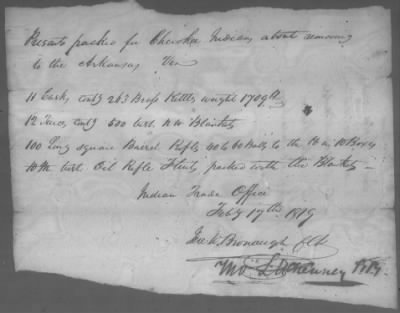 Presents packed for Cherokee Indians about removing
to the Arkansas Viz
11 Casks contg 263 Brass Kettles weight 1709 lb
12 Trusses contg 500 best N W Blankets
100 Long square Barrel Rifles 40 to 60 Balls to the lb in 10 Boxes
10 M best Oil Rifle Flints packed with the Blankets
Indian Trade Office
Feby 17th 1819
Bronaugh Clk
Tho L McKenney